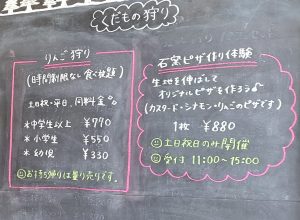 くだもの狩り
りんご狩り
(時間制限なし食べ放題)
土日祝・平日、同料金
*中学生以上 ¥770
*小学生 ¥550
*幼児 ¥330
お持ち帰りは量り売りです。
石窯ピザ作り体験
生地を伸ばして
オリジナルピザを作ろう♪
(カスタード・シナモン・りんごのピザです)
1枚 ¥880
土日祝日のみ開催
受付 11:00~15:00